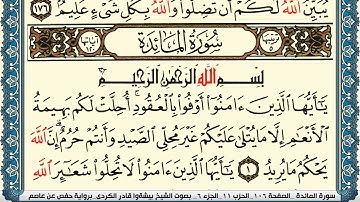 يُبَيِّنُ ٱللَّهُ لَكُمْ أَن تَضِلُّوا۟ وَٱللَّهُ بِكُلِّ شَىْءٍ عَلِيمٌۢ ١٧٦
سُورَةُ المَائِدَةِ
بِسْمِ ٱللَّهِ ٱلرَّحْمَٰنِ ٱلرَّحِيمِ
يَٰٓأَيُّهَا ٱلَّذِينَ ءَامَنُوٓا۟ أَوْفُوا۟ بِٱلْعُقُودِ أُحِلَّتْ لَكُم بَهِيمَةُ
ٱلْأَنْعَٰمِ إِلَّا مَا يُتْلَىٰ عَلَيْكُمْ غَيْرَ مُحِلِّى ٱلصَّيْدِ وَأَنتُمْ حُرُمٌ إِنَّ ٱللَّهَ
يَحْكُمُ مَا يُرِيدُ ١ يَٰٓأَيُّهَا ٱلَّذِينَ ءَامَنُوا۟ لَا تُحِلُّوا۟ شَعَٰٓئِرَ ٱللَّهِ
سورة المائدة _ الصفحة ١٠٦ _ الحزب ١١ _ الجزء ٦ _ بصوت الشيخ بيشةوا قادر الكردي _ برواية حفص عن عاصم